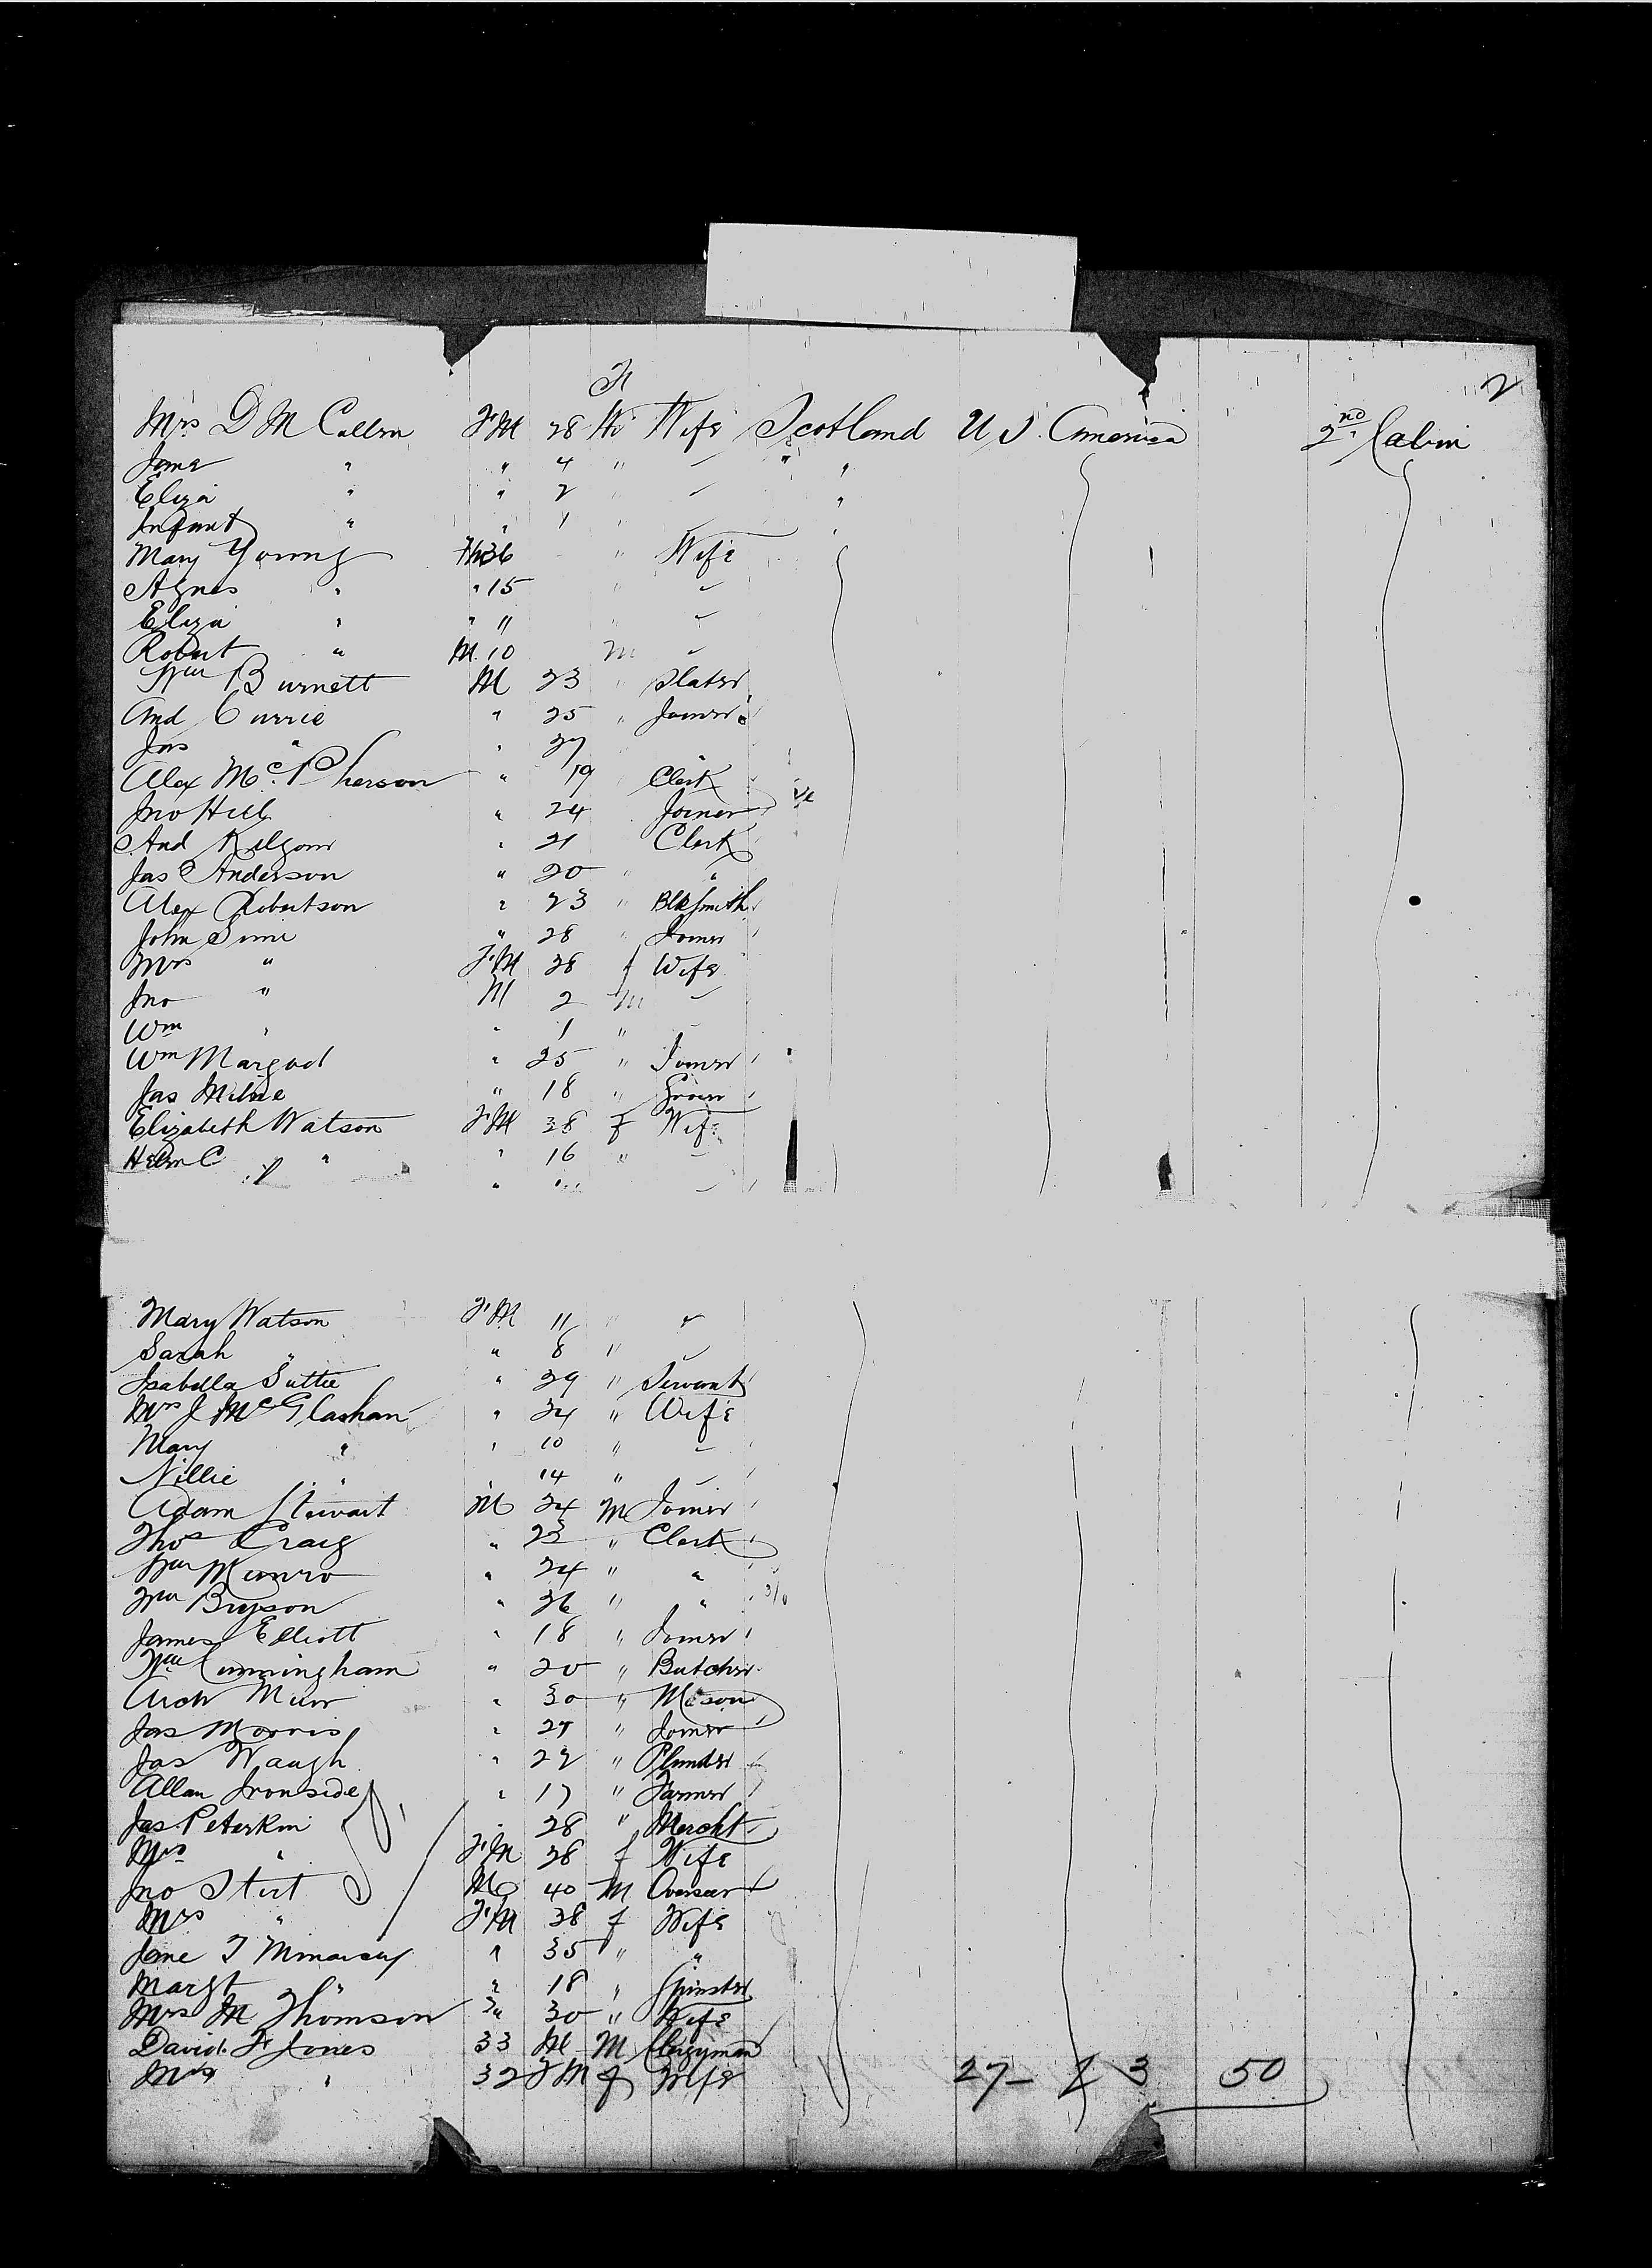 2
Mrs D M Callum FM 28 Wife Scotland U.S. America 2nd Cabin
Jane " " 4 " "
Eliza " " 2 " "
Infant " " 1 " "
Mary Young 36 " Wife
Agnes " " 15 "
Eliza " " 11 "
Robert " M 10 M
Wm Burnett M 23 " Slater
And Currie " 25 " Joiner
Jas " " 27 "
Alex McPherson " 19 " Clerk
Jno Hill " 24 Joiner
And Kilgour " 21 Clerk
Jas Anderson " 20 " "
Alex Robertson " 23 " Blksmith
John Sime " 28 " Joiner
Mrs " FM 28 f Wife
Jno " M 2 M
Wm " " 1 "
Wm " 25 " Joiner
Jas Milne " 18 " Grocer
Elizabeth Watson FM 38 f Wife
Helen C " " 16 "
Mary Watson FM 11 "
Sarah " " 8 "
Isabella Suttie " 29 " Servant
Mrs J McGlashan " 34 " Wife
Mary " " 10 "
Nillie " 14 "
Adam Stewart M 24 M Joiner
Thos Craig " 23 " Clerk
Wm Munro " 24 " "
Wm Bryson " 26 " "
James Elliott " 18 " Joiner
Wm Cunningham " 20 " Butcher
Arch Muir " 30 " Mason
Jas Morris " 27 " Joiner
Jas Waugh " 22 "
Allan Ironside " 17 " Farmer
Jas Peterkin " 28 " Mercht
Mrs " FM 28 f Wife
Jno M 40 M Overseer
Mrs " FM 38 f Wife
Jane T " 35 " "
Margt " " 18 " Spinster
Mrs M Thomson " 30 " Wife
David F Jones 33 M M Clergyman
Mrs " 32 FM f Wife 27 - 23 50